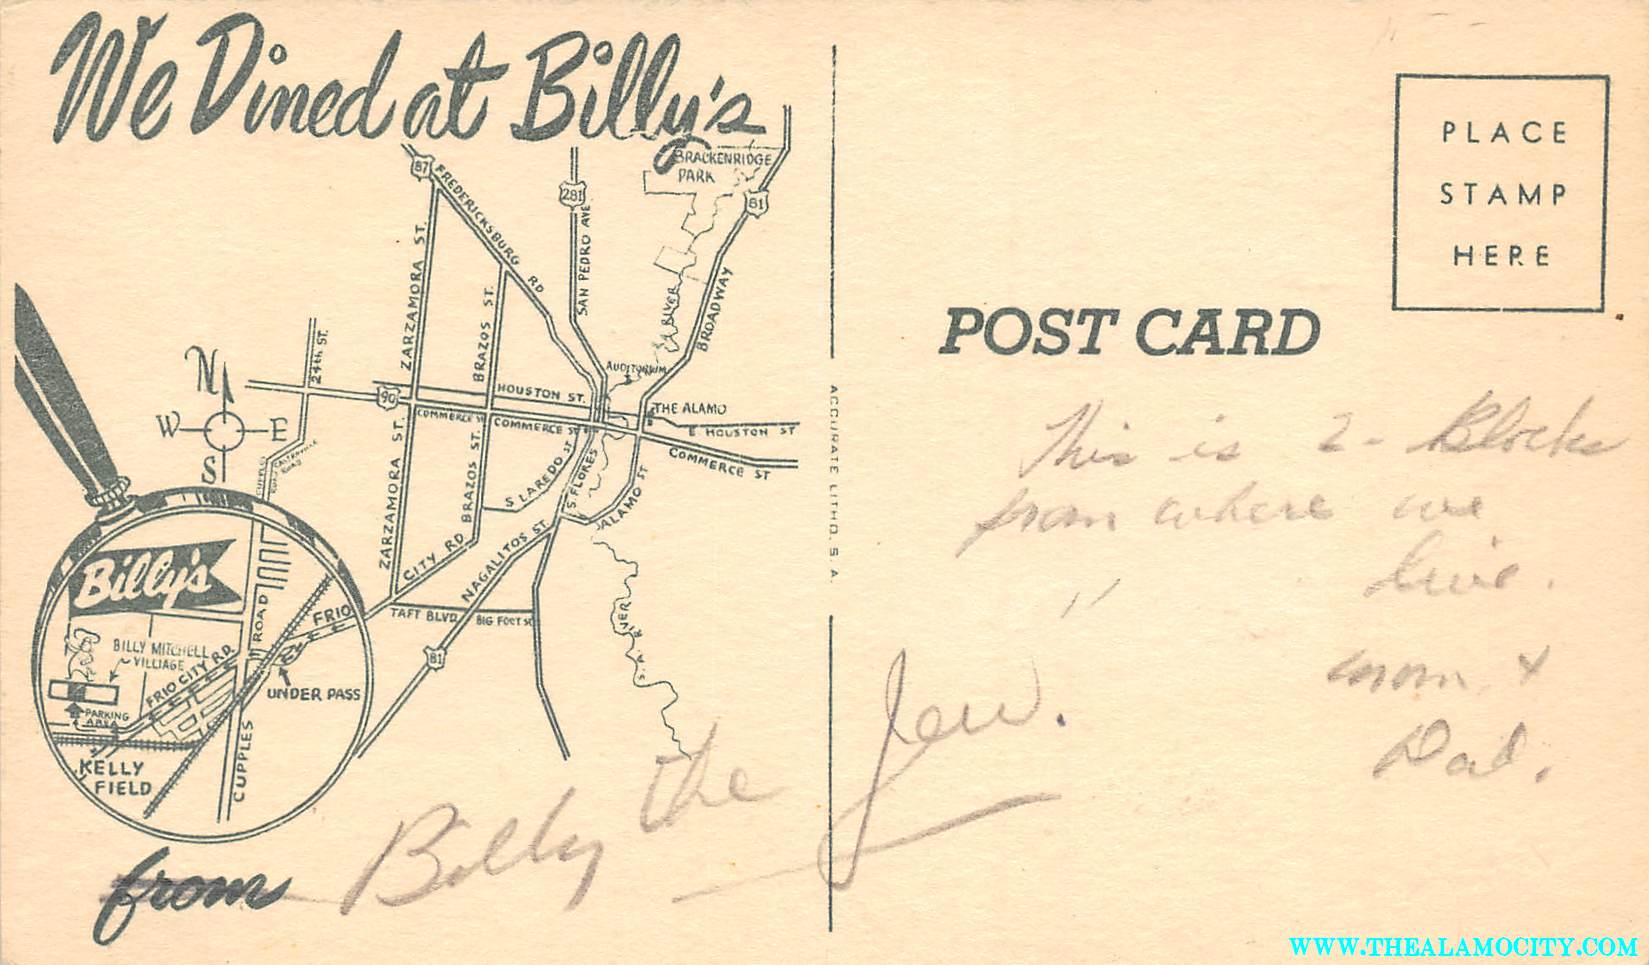 We Dined at Billy's
BRACKENRIDGE
PARK
87
FREDERICKSBURG RD
281
SAN PEDRO AVE.
81
BROADWAY
S.A. RIVER
ZARZAMORA ST.
BRAZOS ST.
24th. ST.
N
W E
S
AUDITORIUM
90
HOUSTON ST.
COMMERCE ST
COMMERCE ST.
THE ALAMO
E. HOUSTON ST
COMMERCE ST
CUPPLES ROAD
CASTROVILLE
ROAD
ZARZAMORA ST.
BRAZOS ST.
S LAREDO ST
S. FLORES
ALAMO ST
CITY RD.
NAGALITOS ST.
TAFT BLVD.
BIG FOOT ST
81
S.A. RIVER
Billy's
ROAD
FRIO
BILLY MITCHELL
VILLIAGE
FRIO CITY RD.
UNDER PASS
PARKING
AREA
KELLY
FIELD
CUPPLES
from Billy the Jew.
ACCURATE LITHO. S. A.
PLACE
STAMP
HERE
POST CARD
This is 2 - Blocks
from where we
live.
mom &
Dad.
WWW.THEALAMOCITY.COM